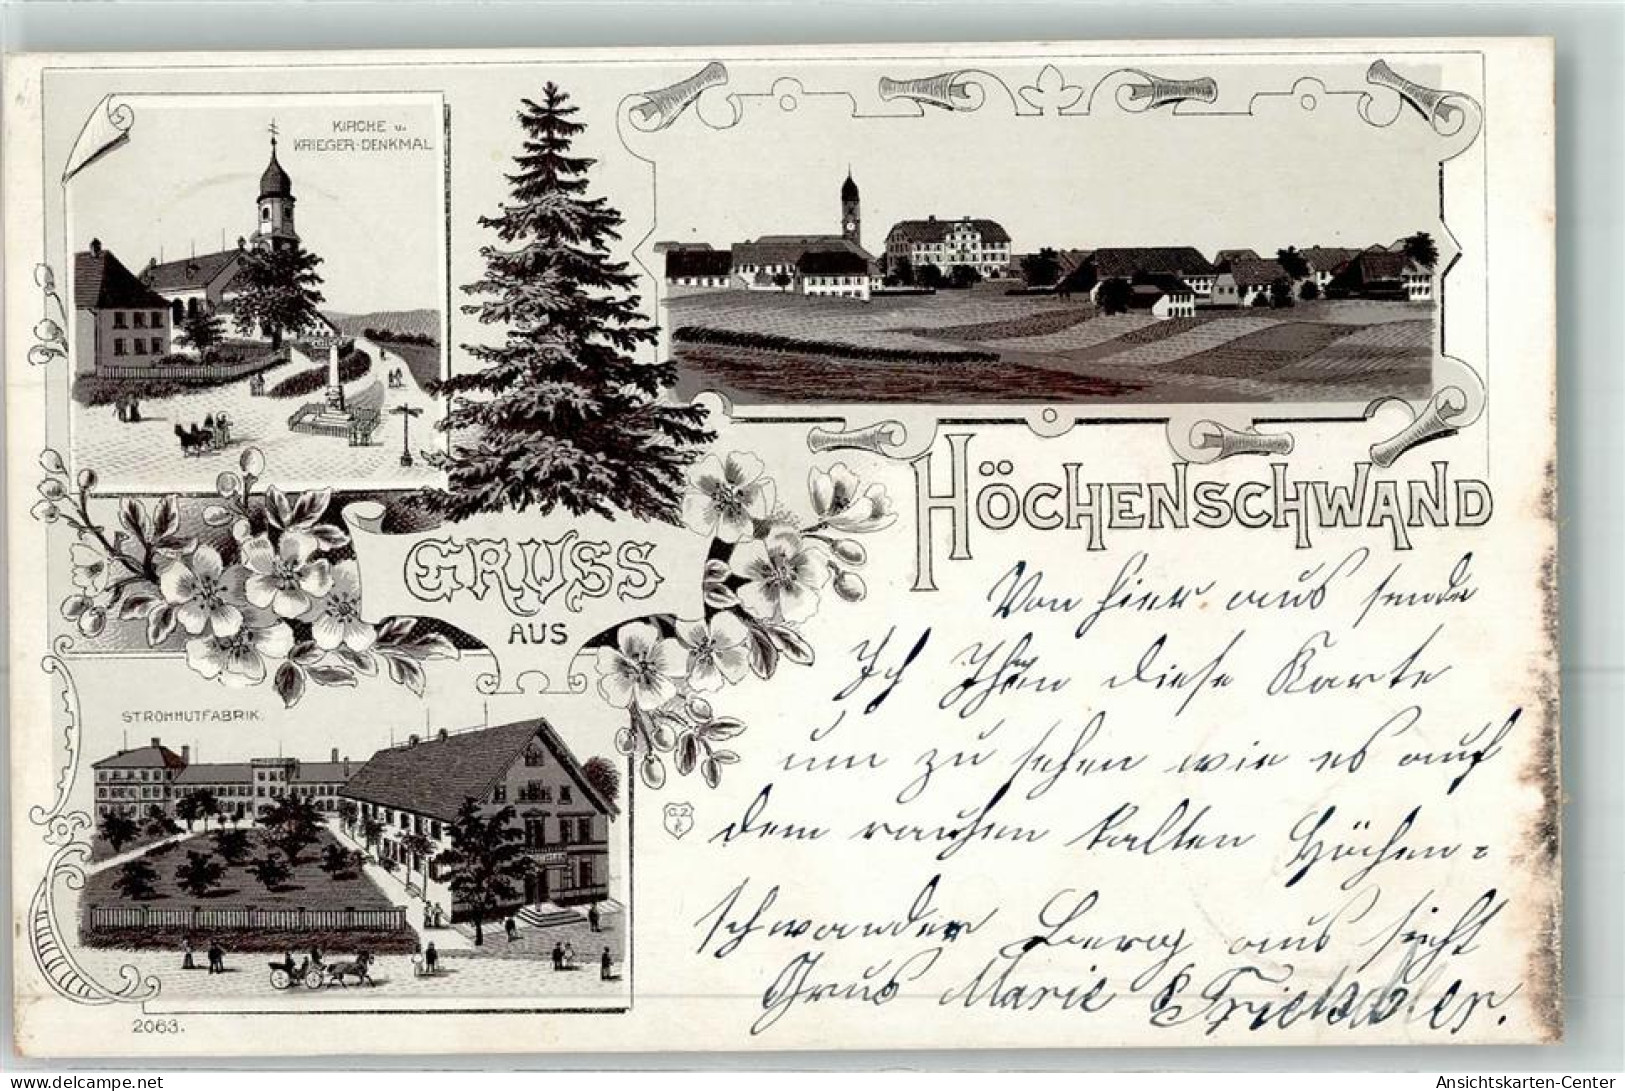 KIRCHE u.
KRIEGER-DENKMAL
HÖCHENSCHWAND
GRUSS
AUS
STROHHUTFABRIK.
C.Z.
K
2063.
Von hier aus sende
Ich Ihnen diese Karte
um zu sehen wie es auf
dem rauhen kalten Höchen=
schwander Berg aus sieht
Grus Marie
Ansichtskarten-Center